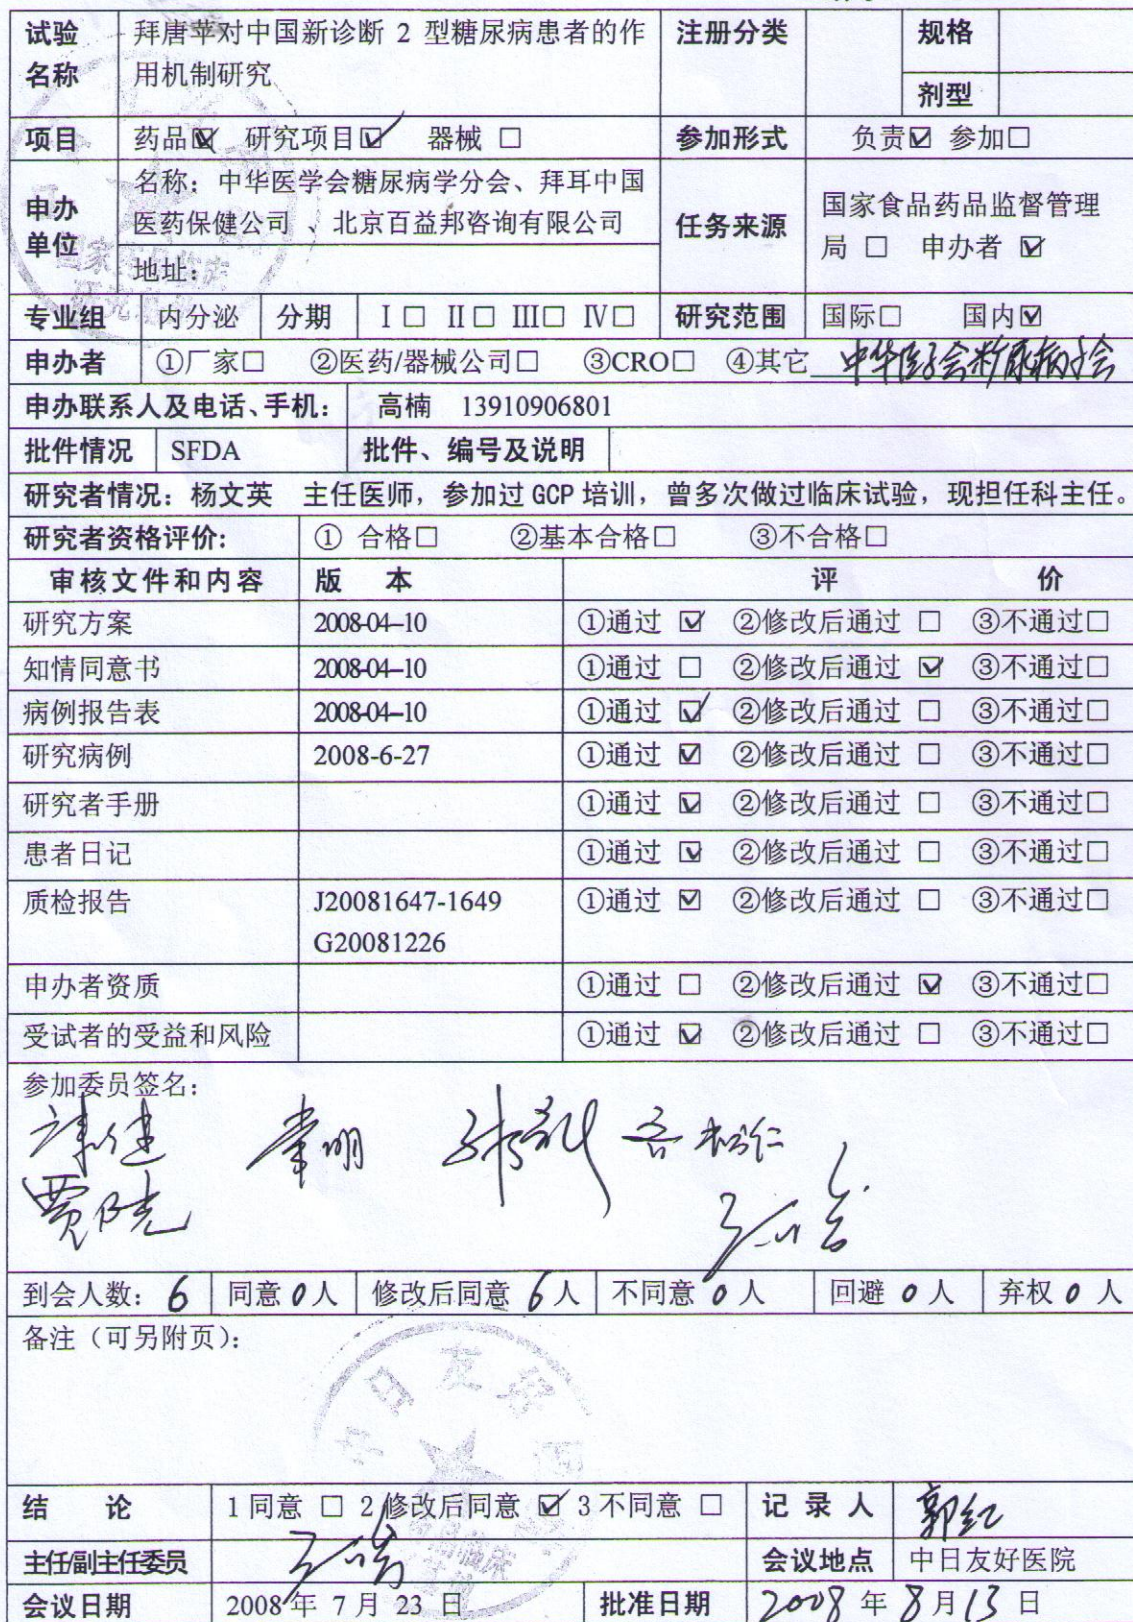 试验名称 拜唐苹对中国新诊断 2 型糖尿病患者的作用机制研究 注册分类 规格
剂型
项目 药品☑ 研究项目☑ 器械 □ 参加形式 负责☑ 参加□
申办单位 名称：中华医学会糖尿病学分会、拜耳中国医药保健公司 、北京百益邦咨询有限公司 任务来源 国家食品药品监督管理局 □ 申办者 ☑
地址：
专业组 内分泌 分期 I □ II □ III□ IV□ 研究范围 国际□ 国内☑
申办者 ①厂家□ ②医药/器械公司□ ③CRO□ ④其它 中华医学会糖尿病学会
申办联系人及电话、手机： 高楠 13910906801
批件情况 SFDA 批件、编号及说明
研究者情况：杨文英 主任医师，参加过 GCP 培训，曾多次做过临床试验，现担任科主任。
研究者资格评价: ① 合格□ ②基本合格□ ③不合格□
审核文件和内容 版 本 评 价
研究方案 2008-04--10 ①通过 ☑ ②修改后通过 □ ③不通过□
知情同意书 2008-04--10 ①通过 □ ②修改后通过 ☑ ③不通过□
病例报告表 2008-04--10 ①通过 ☑ ②修改后通过 □ ③不通过□
研究病例 2008-6-27 ①通过 ☑ ②修改后通过 □ ③不通过□
研究者手册 ①通过 ☑ ②修改后通过 □ ③不通过□
患者日记 ①通过 ☑ ②修改后通过 □ ③不通过□
质检报告 J20081647-1649 ①通过 ☑ ②修改后通过 □ ③不通过□
G20081226
申办者资质 ①通过 □ ②修改后通过 ☑ ③不通过□
受试者的受益和风险 ①通过 ☑ ②修改后通过 □ ③不通过□
参加委员签名：
到会人数： 6 同意 0 人 修改后同意 6 人 不同意 0 人 回避 0 人 弃权 0 人
备注（可另附页）：
中日友好
结 论 1 同意 □ 2 修改后同意 ☑ 3 不同意 □ 记 录 人 郭红
主任/副主任委员 会议地点 中日友好医院
会议日期 2008 年 7 月 23 日 批准日期 2008 年 8 月 13 日